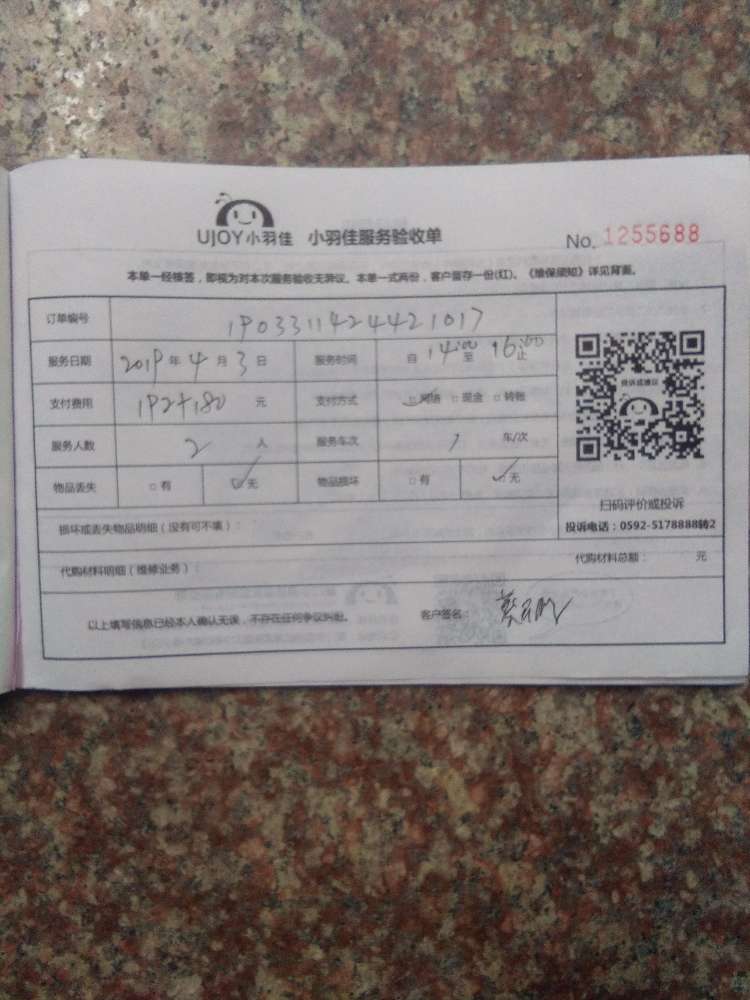 UJOY小羽佳 小羽佳服务验收单 No. 1255688
本单一经接签，即视为对本次服务验收无异议。本单一式两份，客户留存一份(红)。《维保须知》详见背面。
订单编号 1903311424421017
服务日期 2019年4月3日 服务时间 自14:00至16:00止
支付费用 192+180元 支付方式 ☑网络 □现金 □转账
服务人数 2人 服务车次 1车/次
物品丢失 □有 ☑无 物品损坏 □有 ☑无
投诉或建议
扫码评价或投诉
投诉电话：0592-5178888转2
损坏或丢失物品明细（没有可不填）：
代购材料明细（维修业务）： 代购材料总额： 元
以上填写信息已经本人确认无误，不存在任何争议纠纷。 客户签名：